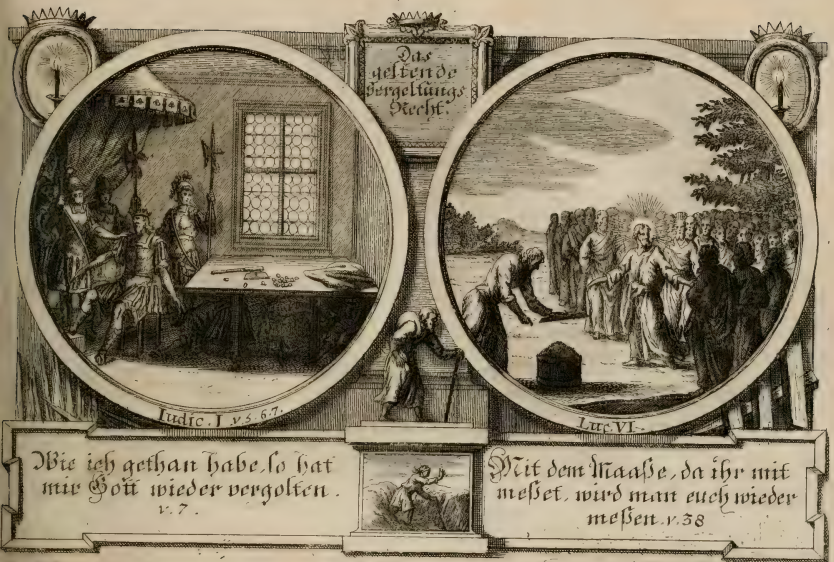 Das
geltende
Vergeltungs
Recht.
Iudic. I v. 5. 6. 7.
Luc. VI.
Wie ich gethan habe, so hat
mir Gott wieder vergolten.
v. 7.
Mit dem Maaße, da ihr mit
meßet, wird man euch wieder
meßen. v. 38